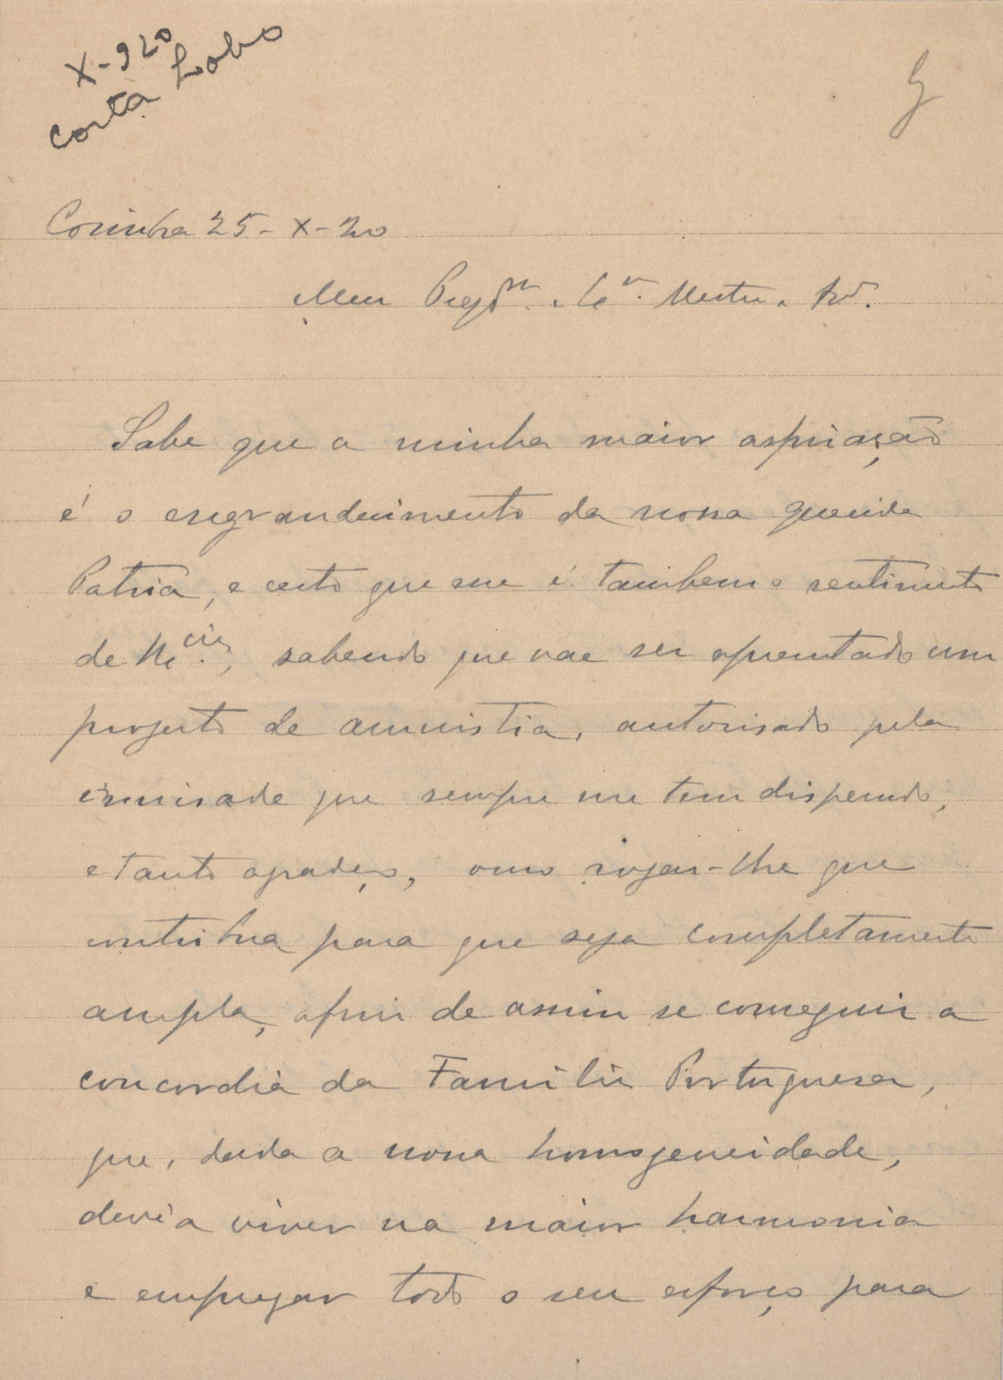 X-920
Costa Lobo
Coimbra 25-X-20
Meu
Sabe que a minha maior aspiração
é o engrandecimento da nossa querida
Patria, e certo que esse é tambem o sentimento
de V. Ex.cia, sabendo que vae ser apresentado um
projecto de amnistia, autorisado pela
amisade que sempre me tem dispensado,
e tanto agradeço, ouso rogar-lhe que
contribua para que seja completamente
ampla, afim de assim se conseguir a
concordia da Familia Portuguesa,
que, dada a nossa homogeneidade,
devia viver na maior harmonia
e empregar todo o seu esforço para